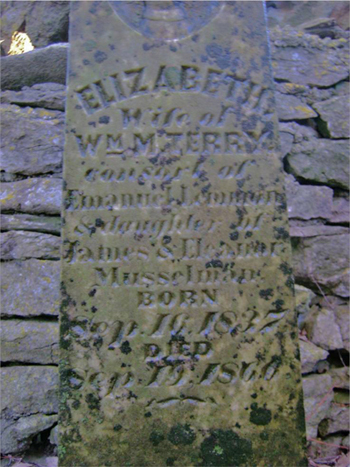 ELIZABETH
Wife of
WM. M. TERRY
consort of
Emanuel
& daughter of
James & Eleanor
Musselman
BORN
Sep. 16. 1837
DIED
Sep. 19. 1860